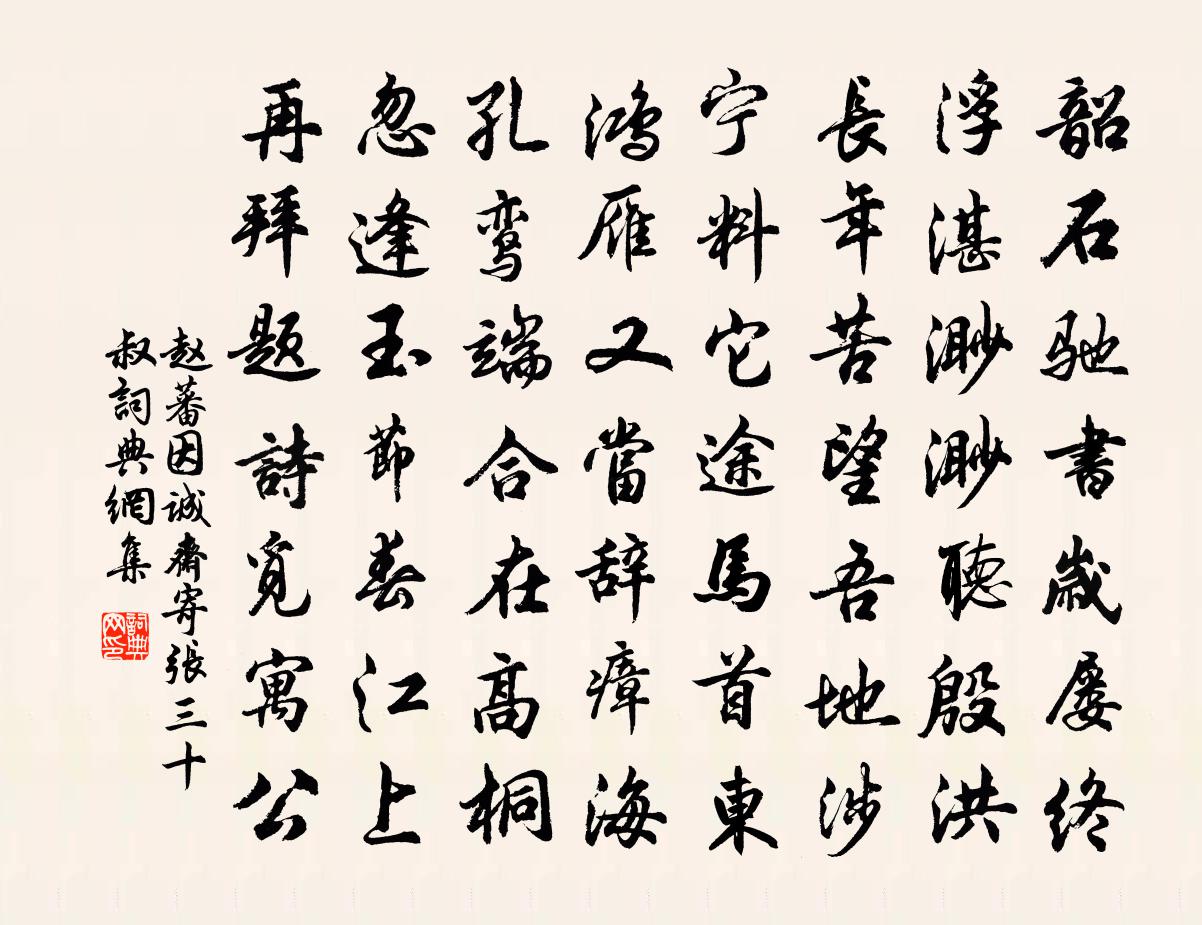 韶石驰書歲屡终
浮湛渺渺聽殷洪
長年苦望吾地涉
宁料它途馬首東
鸿雁又當辞瘴海
孔鸾端合在高桐
忽逢玉節春江上
再拜题詩覓寓公
赵蕃因诚齋寄張三十
叔詞典網集
詞典网印